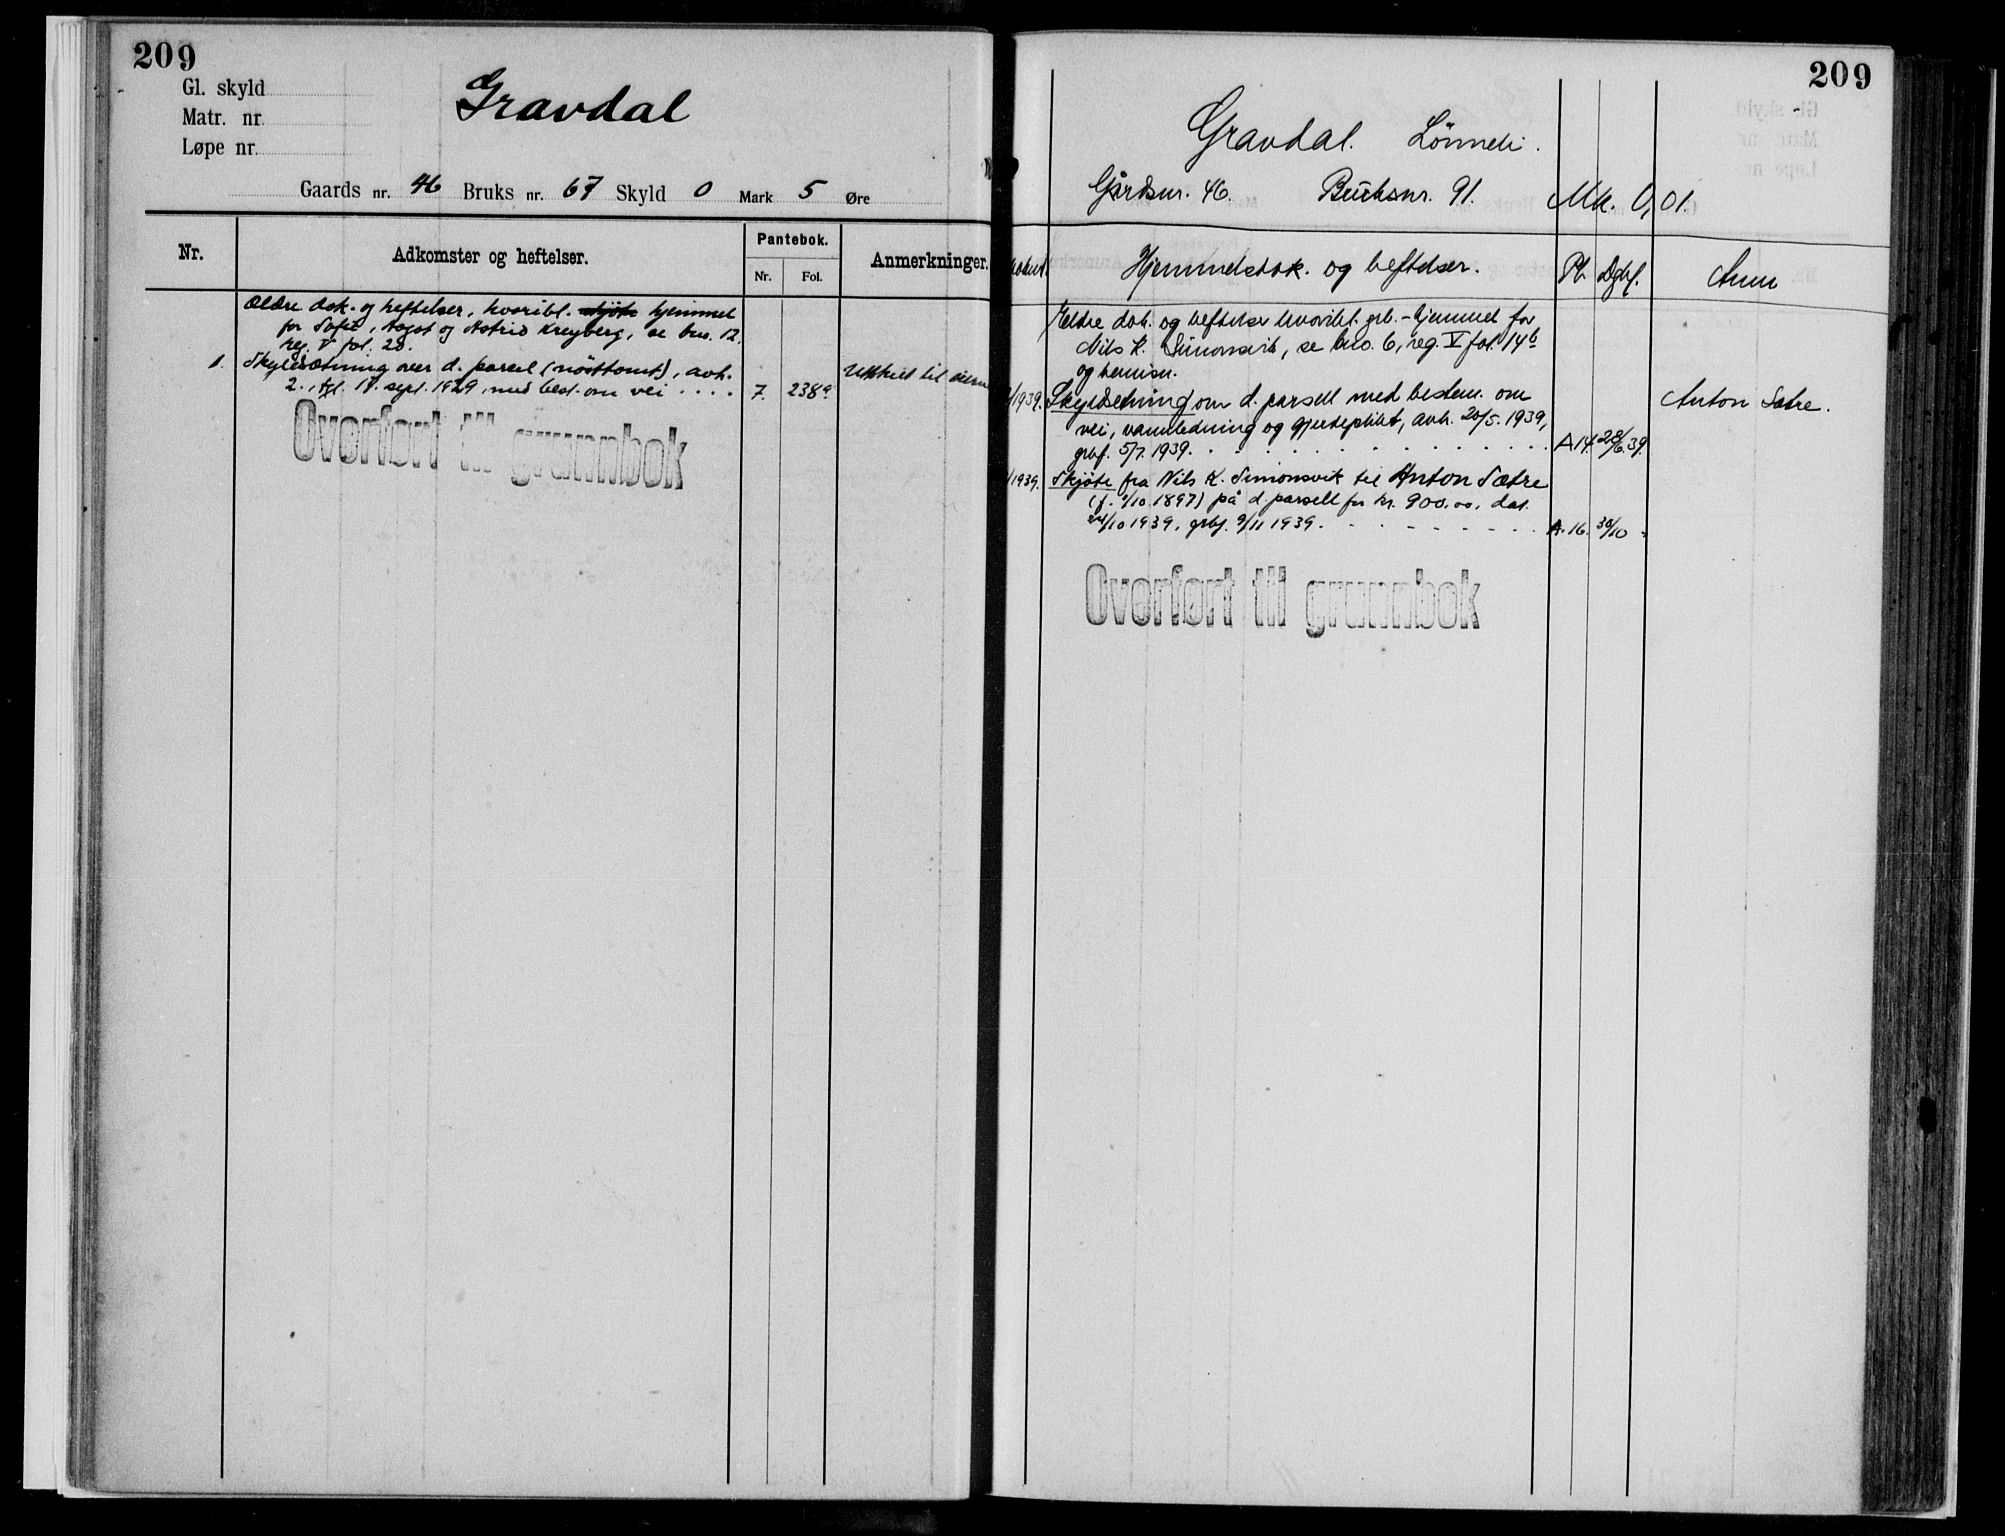 209
Gl. skyld
Matr. nr.
Løpe nr.
Gravdal
Gaards nr. 46 Bruks nr. 67 Skyld 0 Mark 5 Øre
Nr.
Adkomster og heftelser.
Pantebok.
Nr. Fol.
Anmerkninger.
Ældre dok. og heftelser, hvoribl. skjöte hjemmel
for Sofie, Aagot og Astrid Kreyberg, se bno. 12.
reg. V fol. 28.
1. Skyldsætning over d. parcel (nösttomt), avh.
2., tgl. 17. sept. 1929, med best. om vei . . . . 7. 238a
Utskilt til
Overført til grunnbok
209
Gravdal. Lönneli.
Gårdsnr. 46. Bruksnr. 91. Mk. 0,01.
Hjemmelsdok. og heftelser.
Pb. Dgbf. Anm
Eldre dok. og heftelser hvoribl. grb.-hjemmel for
Nils K. Simonsvik, se bno. 6, reg. V fol. 14b
og henvisn.
/1939. Skyldsetning om d. parsell med bestem. om
vei, vannledning og gjerdeplikt, avh. 20/5. 1939,
grbf. 5/7. 1939. . . . . . . . . . . . A 14. 28/6. 39.
Anton Sætre.
/1939. Skjöte fra Nils K. Simonsvik til Anton Sætre
(f. 9/10 1897) på d. parsell for kr. 900.00, dat.
24/10 1939, grbf. 9/11 1939. . . . . . . . A. 16. 30/10 -
Overført til grunnbok